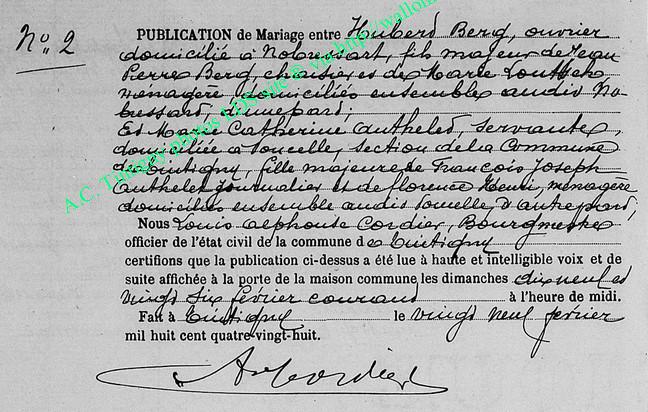 N° 2
PUBLICATION de Mariage entre Hubert Berg, ouvrier
domicilié à Nobressart, fils majeur de Jean
Pierre Berg, et de Marie
ménagère domiciliés ensemble audit No
bressart, d'une part;
Et Marie Catherine Authelet, servante,
domiciliée à Poncelle, section de la Commune
de Tintigny, fille majeure de François Joseph
Authelet journalier et de florence Henri, ménagère
domiciliés ensemble audit Poncelle, d'autre part;
Nous Louis Alphonse Cordier, Bourgmestre
officier de l'état civil de la commune de Tintigny
certifions que la publication ci-dessus a été lue à haute et intelligible voix et de
suite affichée à la porte de la maison commune les dimanches dix neuf et
vingt six février courant à l'heure de midi.
Fait à Tintigny le vingt neuf février
mil huit cent quatre-vingt-huit.
A Cordier
A.C. Tintigny photos LDS via http://wallon